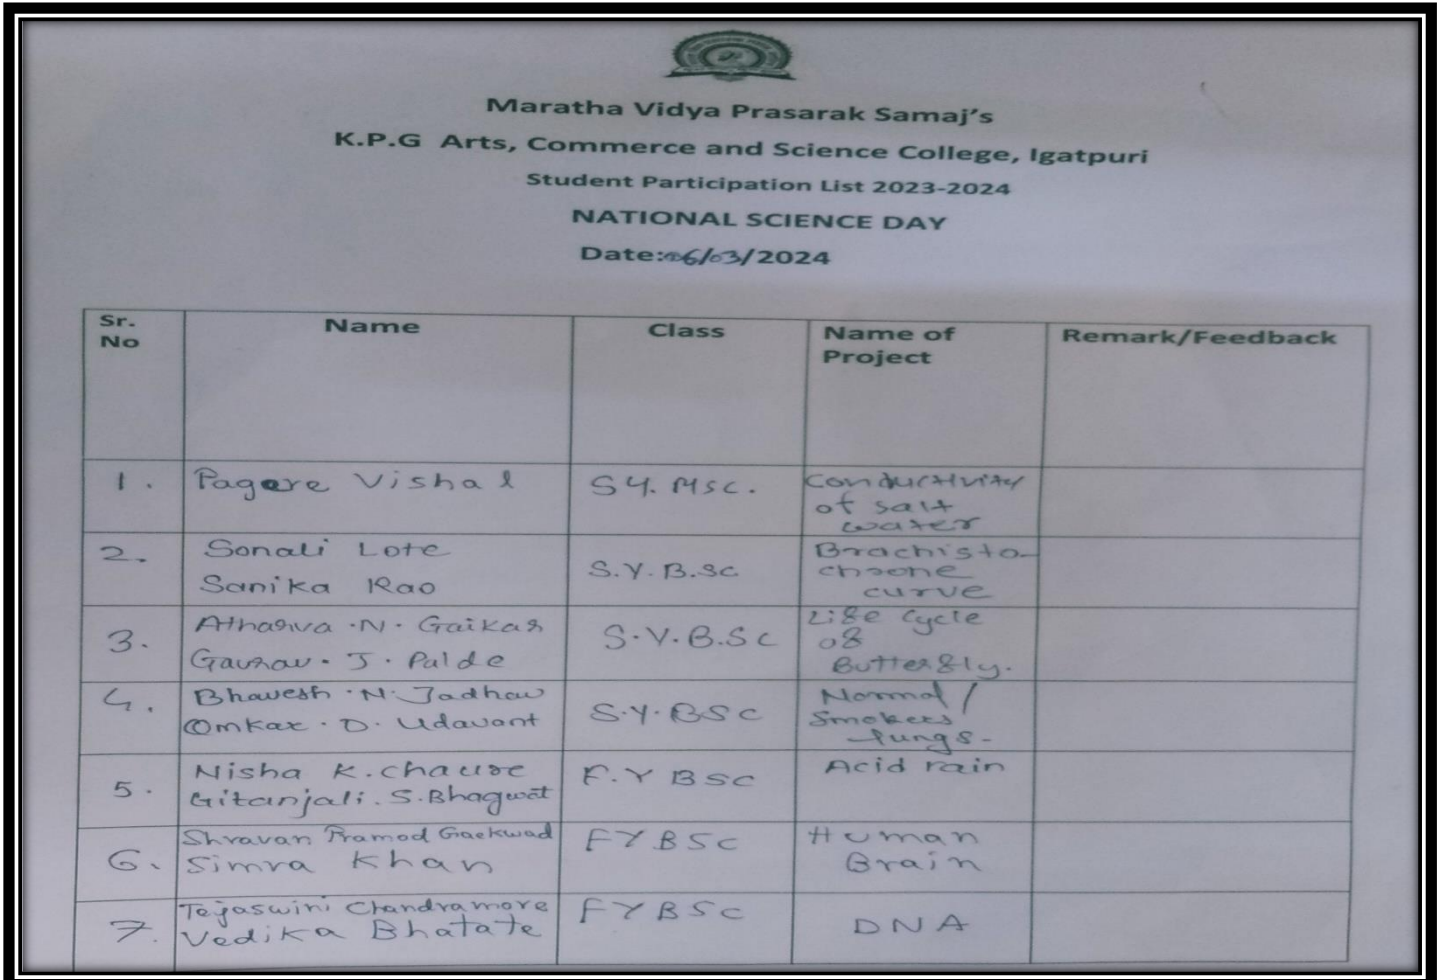 Maratha Vidya Prasarak Samaj's
K.P.G Arts, Commerce and Science College, Igatpuri
Student Participation List 2023-2024
NATIONAL SCIENCE DAY
Date:06/03/2024
Sr. No Name Class Name of Project Remark/Feedback
1. Pagere Vishal S.Y. Msc. Conductivity
of salt
water
2. Sonali Lote
Sanika Rao S.Y.B.Sc Brachisto-
chrone
curve
3. Atharva .N. Gaikar
Gaurav. J. Palde S.Y.B.Sc Life Cycle
of
Butterfly.
4. Bhavesh .N. Jadhav
Omkar. D. Udavant S.Y.BSc Normal/
Smokers
lungs-
5. Nisha K. Chaure
Gitanjali. S. Bhagwat F.Y BSc Acid rain
6. Shravan Pramod Gaekwad
Simra Khan FYBSc Human
Brain
7. Tejaswini Chandramore
Vedika Bhatate FYBSc DNA